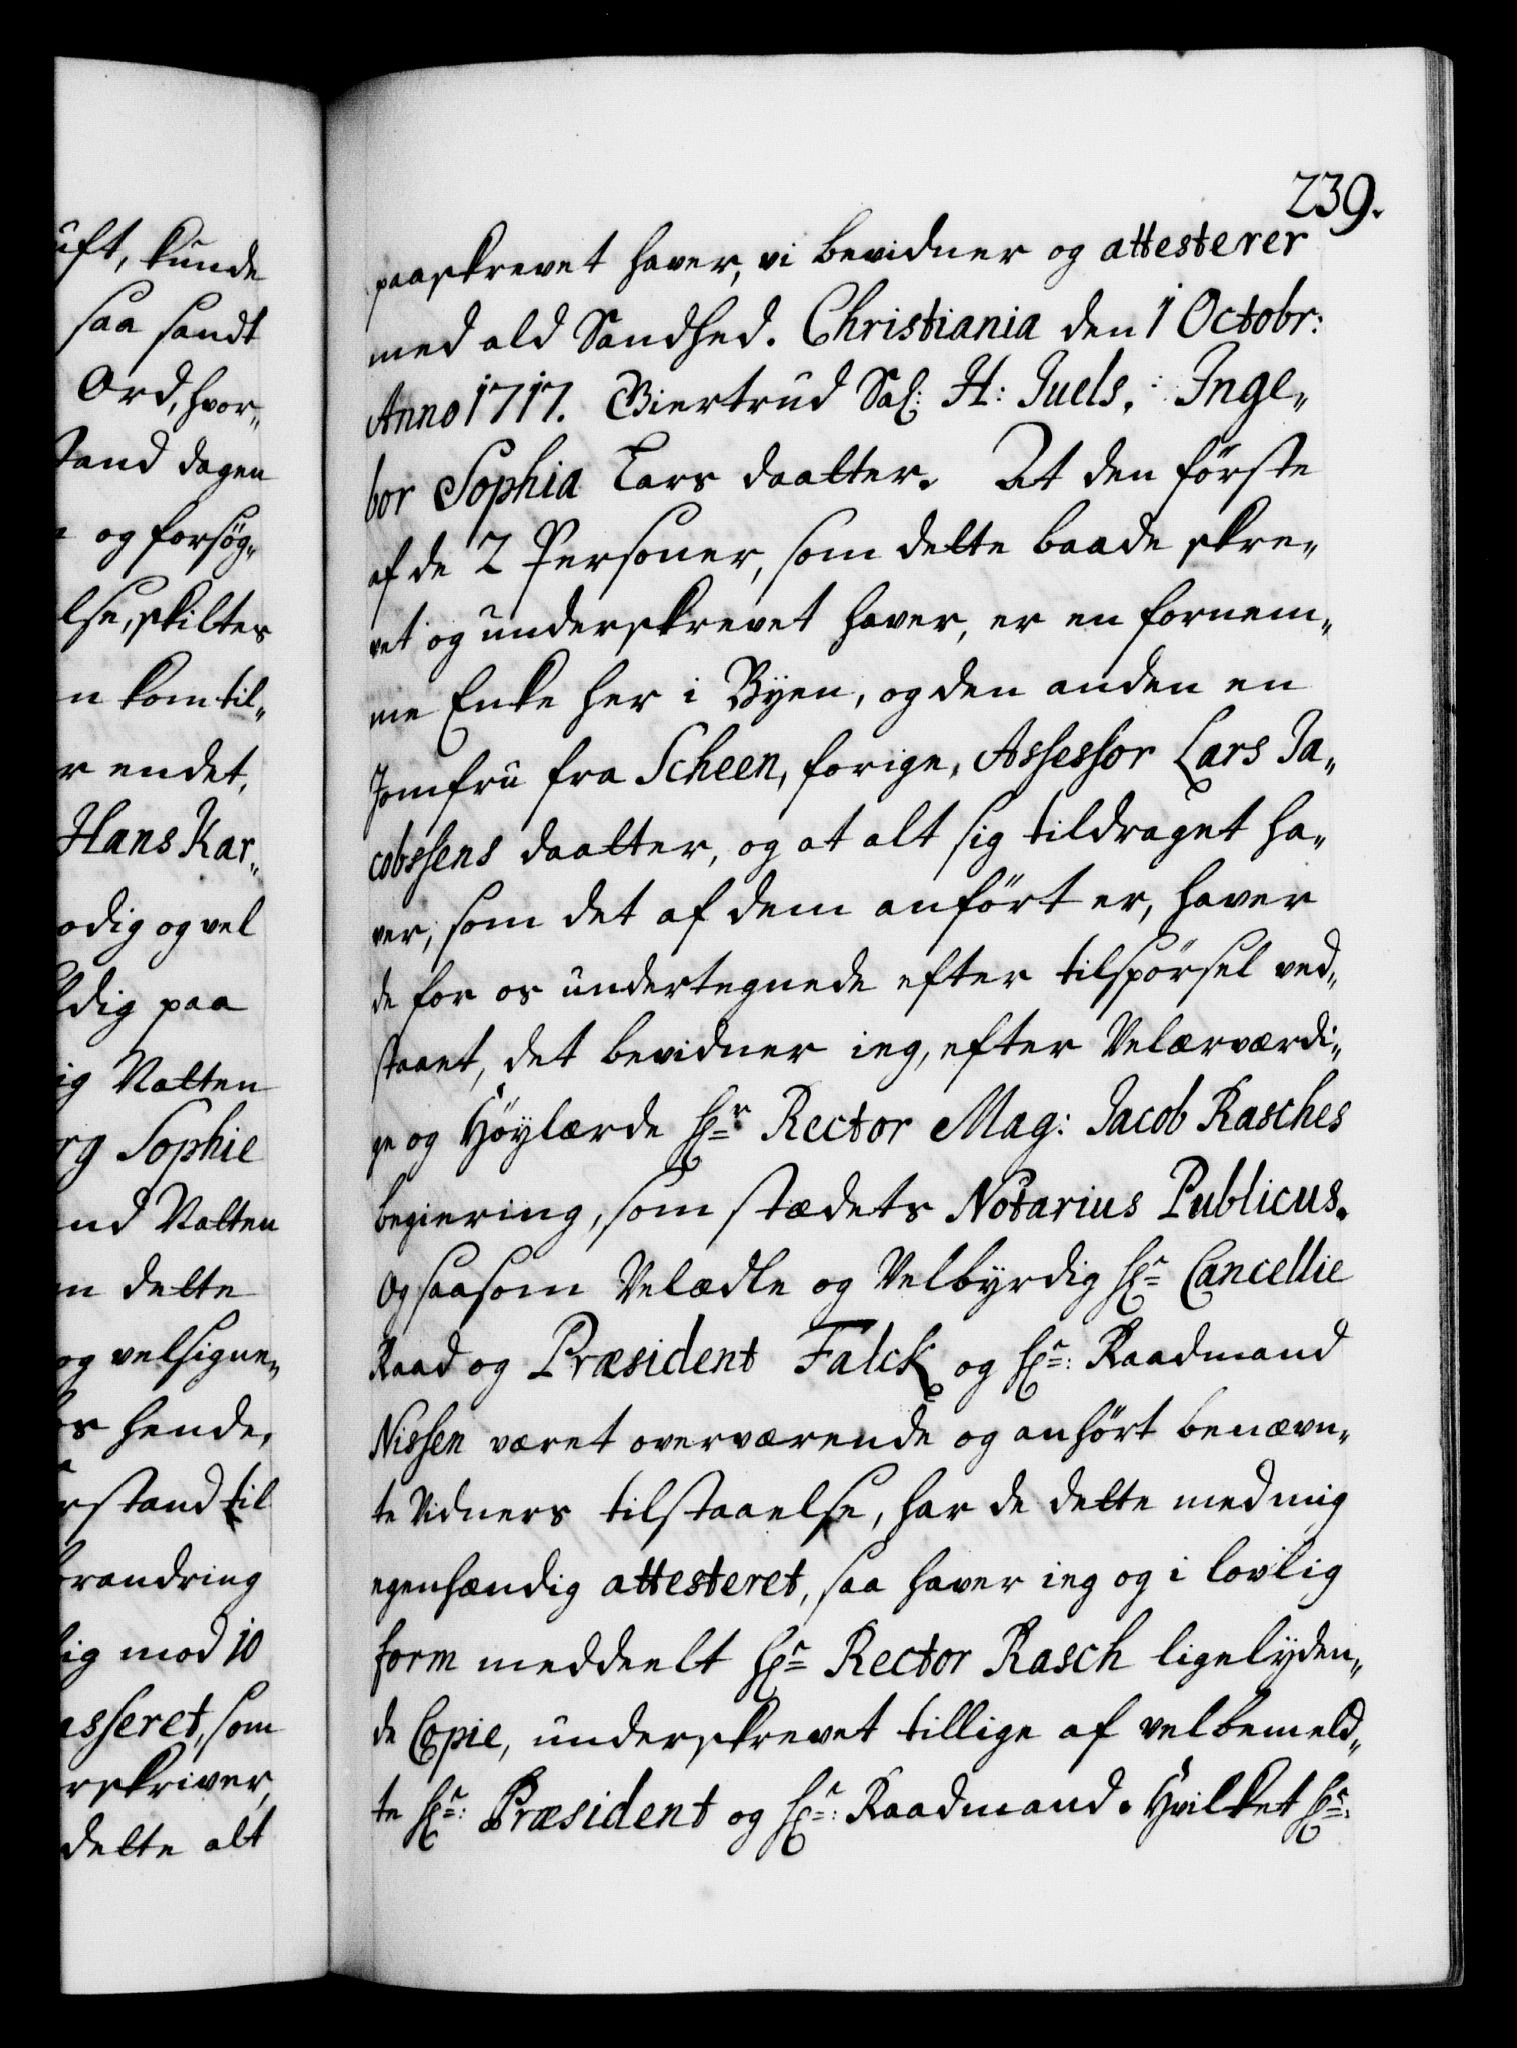 uft, kunde
saa sandt
Ord, hvor„
stand dagen
og forsøg„
lse, skiltes
n kom til„
r endet,
Hans Kar„
odig og vel
ldig paa
ig Natten
rg Sophie
nd Natten
n dette
og velsigne„
os hende,
rstand til
brandring
lig mod 10
asseret, som
rskriver,
dette alt
239.
paaskrevet haver, vi bevidner og attesterer
med ald Sandhed. Christiania den 1 Octobr:
Anno 1717. Giertrud Sal: H: Juels. Inge„
bor Sophia Lars daatter. At den første
af de 2 Personer, som dette baade skre„
vet og underskrevet haver, er en fornem„
me Enke her i Byen, og den anden en
Jomfru fra Scheen, forige, Assessor Lars Ja„
cobssens daatter, og at alt sig tildraget ha„
ver, som det af dem anført er, haver
de for os undertegnede efter tilspørsel ved„
staaet, det bevidner ieg, efter Velærværdi„
ge og Høylærde Hr Rector Mag: Jacob Rasches
begiering, som stædets Notarius Publicus.
Og saasom Velædle og Velbyrdig Hr Cancellie
Raad og Præsident Falck og Hr: Raadmand
Nissen været overværende og anhørt benævn„
te Vidners tilstaaelse, har de dette med mig
egenhændig attesteret, saa haver ieg og i lovlig
form meddeelt Hr Rector Rasch ligelyden„
de Copie, underskrevet tillige af velbemeld„
te Hr: Præsident og Hr: Raadmand. Hvilket Hr: